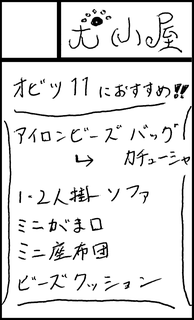 犬小屋
オビツ11におすすめ!!
アイロンビーズ バッグ
↳ カチューシャ
1-2人掛 ソファ
ミニがま口
ミニ座布団
ビーズクッション